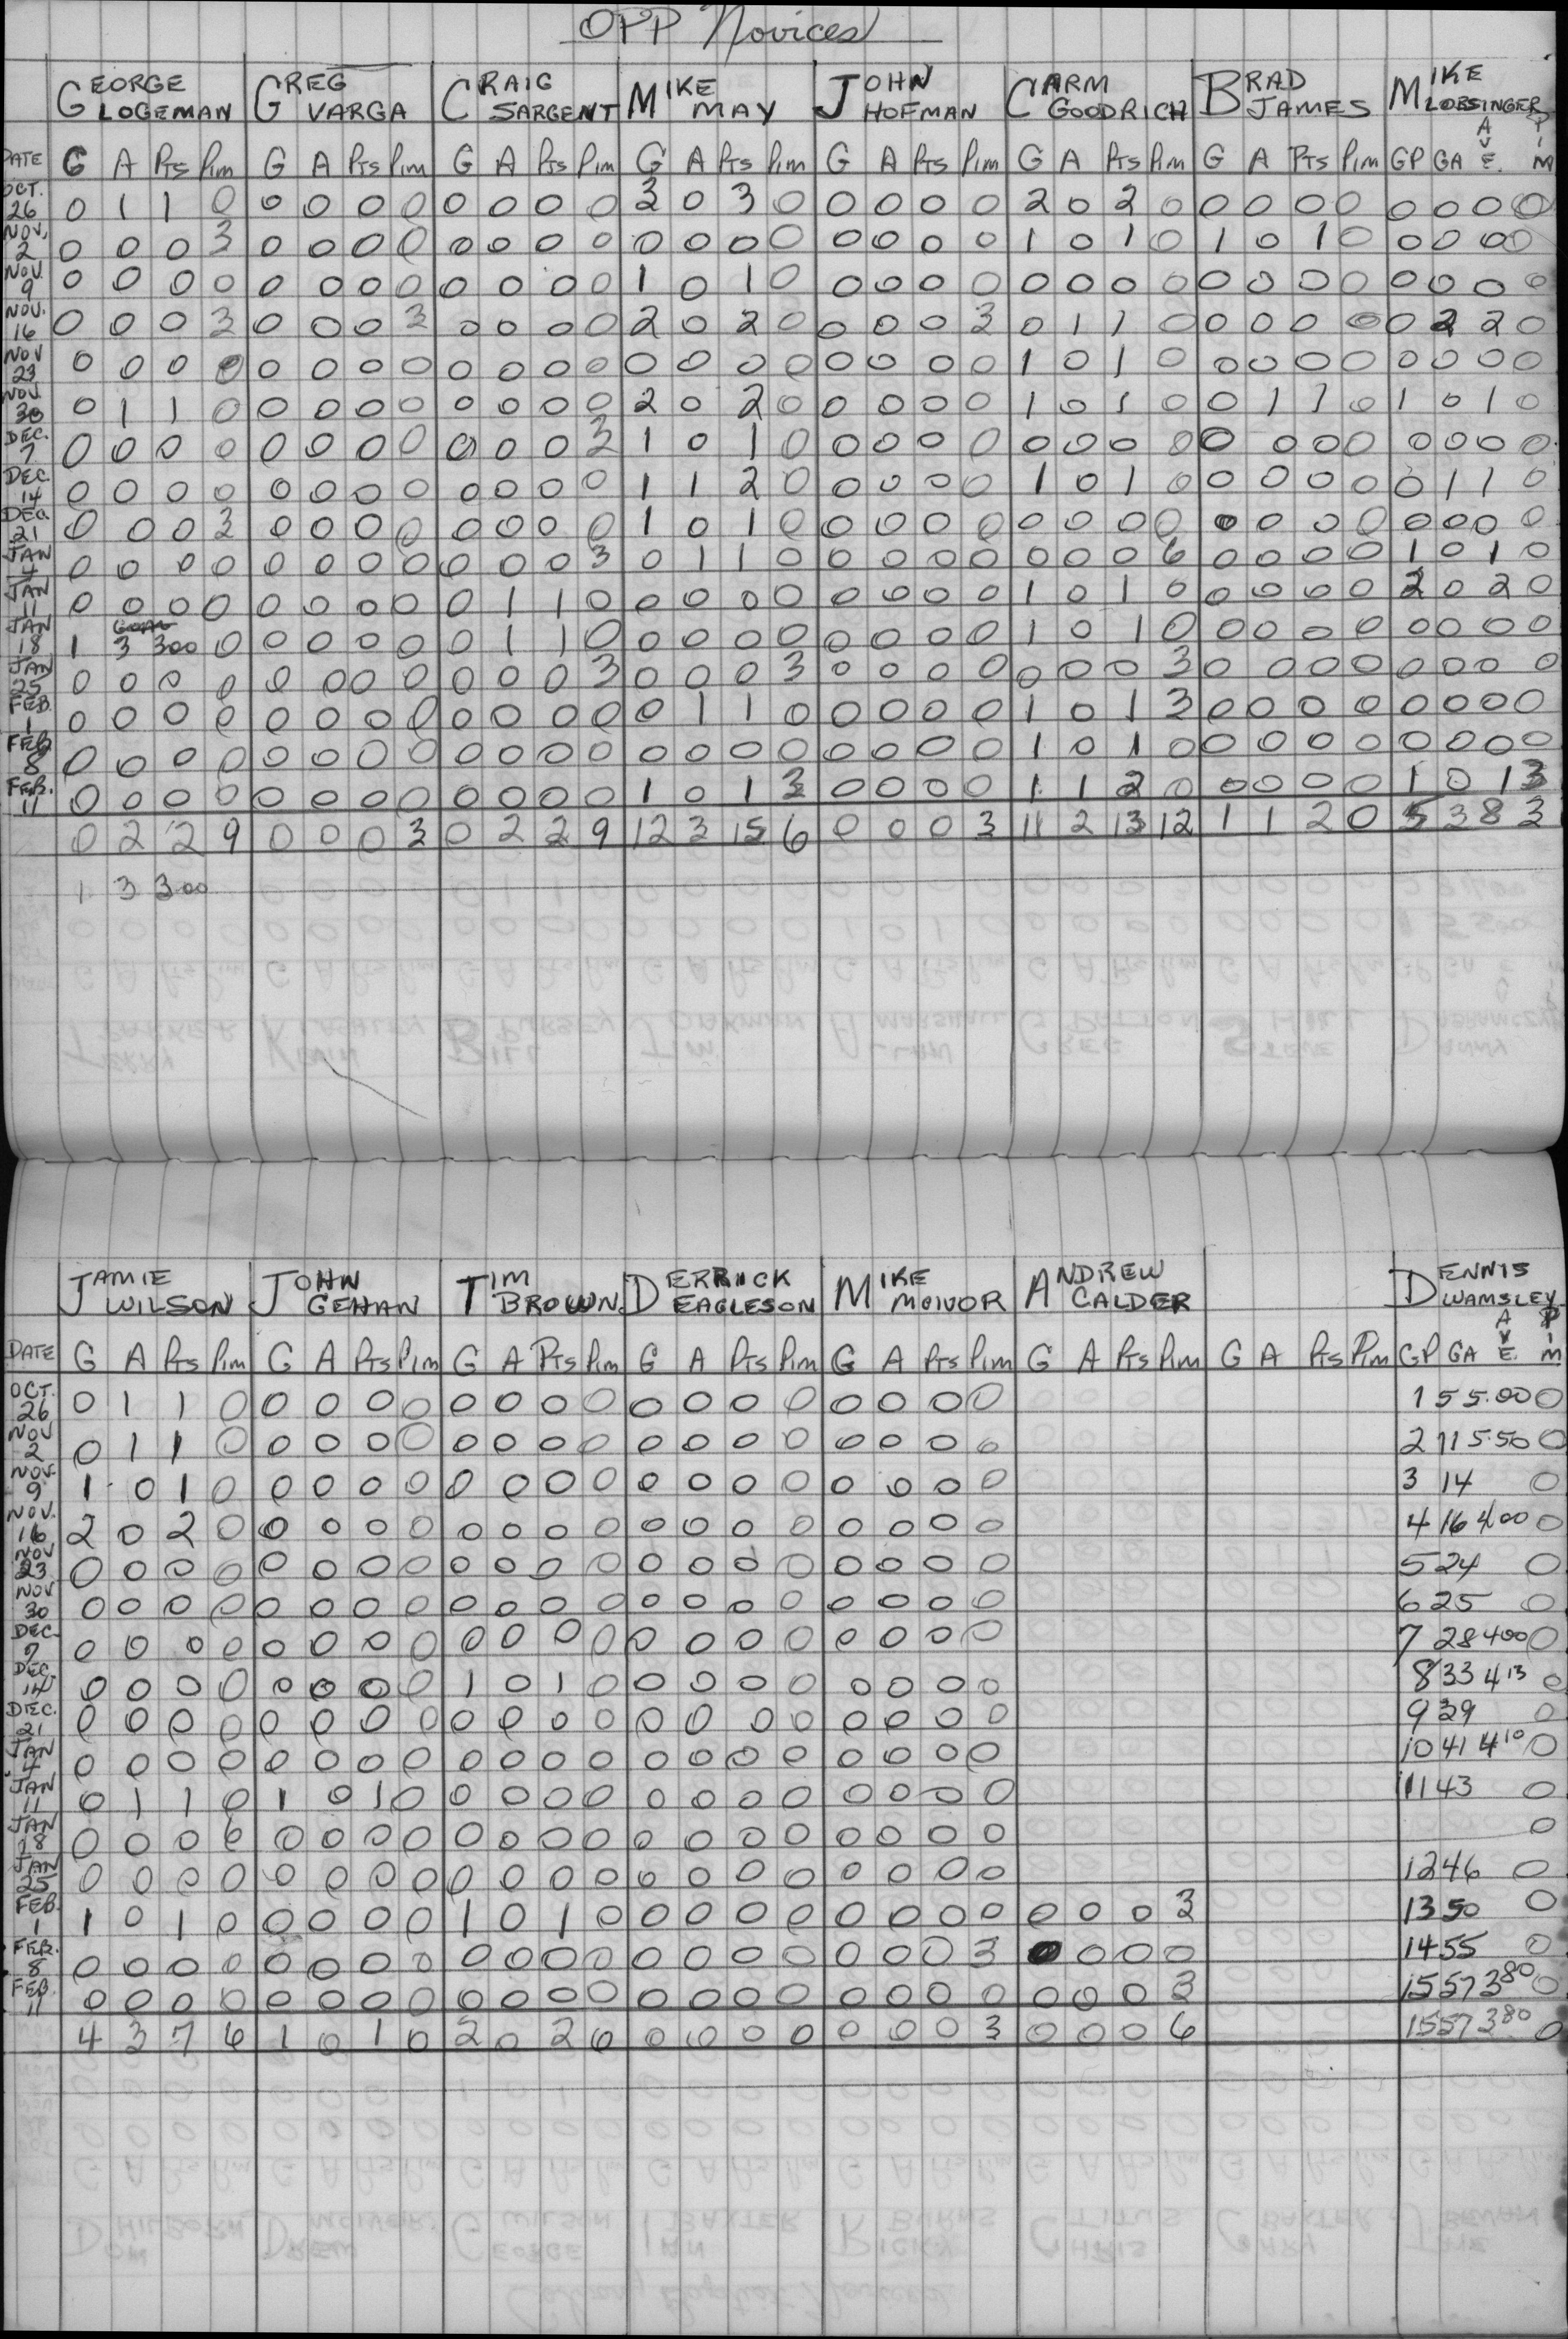 OPP Novices
GEORGE LOGEMAN GREG VARGA CRAIG SARGENT MIKE MAY JOHN HOFMAN CARM GOODRICH BRAD JAMES MIKE LOBSINGER
DATE G A Pts Pim G A Pts Pim G A Pts Pim G A Pts Pim G A Pts Pim G A Pts Pim G A Pts Pim GP GA AVE. PIM
OCT. 26 0 1 1 0 0 0 0 0 0 0 0 0 3 0 3 0 0 0 0 0 2 0 2 0 0 0 0 0 0 0 0 0
NOV. 2 0 0 0 3 0 0 0 0 0 0 0 0 0 0 0 0 0 0 0 0 1 0 1 0 1 0 1 0 0 0 0 0
NOV. 9 0 0 0 0 0 0 0 0 0 0 0 0 1 0 1 0 0 0 0 0 0 0 0 0 0 0 0 0 0 0 0 0
NOV. 16 0 0 0 3 0 0 0 3 0 0 0 0 2 0 2 0 0 0 0 3 0 1 1 0 0 0 0 0 0 2 2 0
NOV 23 0 0 0 0 0 0 0 0 0 0 0 0 0 0 0 0 0 0 0 0 1 0 1 0 0 0 0 0 0 0 0 0
NOV. 30 0 1 1 0 0 0 0 0 0 0 0 0 2 0 2 0 0 0 0 0 1 0 1 0 0 1 1 0 1 0 1 0
DEC. 7 0 0 0 0 0 0 0 0 0 0 0 3 1 0 1 0 0 0 0 0 0 0 0 0 0 0 0 0 0 0 0 0
DEC. 14 0 0 0 0 0 0 0 0 0 0 0 0 1 1 2 0 0 0 0 0 1 0 1 0 0 0 0 0 0 1 1 0
DEC. 21 0 0 0 3 0 0 0 0 0 0 0 0 1 0 1 0 0 0 0 0 0 0 0 0 0 0 0 0 0 0 0 0
JAN 4 0 0 0 0 0 0 0 0 0 0 0 3 0 1 1 0 0 0 0 0 0 0 0 6 0 0 0 0 1 0 1 0
JAN 11 0 0 0 0 0 0 0 0 0 1 1 0 0 0 0 0 0 0 0 0 1 0 1 0 0 0 0 0 2 0 2 0
JAN 18 1 GOAL 3 3.00 0 0 0 0 0 0 1 1 0 0 0 0 0 0 0 0 0 1 0 1 0 0 0 0 0 0 0 0 0
JAN 25 0 0 0 0 0 0 0 0 0 0 0 3 0 0 0 3 0 0 0 0 0 0 0 3 0 0 0 0 0 0 0 0
FEB. 1 0 0 0 0 0 0 0 0 0 0 0 0 0 1 1 0 0 0 0 0 1 0 1 3 0 0 0 0 0 0 0 0
FEB 8 0 0 0 0 0 0 0 0 0 0 0 0 0 0 0 0 0 0 0 0 1 0 1 0 0 0 0 0 0 0 0 0
FEB. 11 0 0 0 0 0 0 0 0 0 0 0 0 1 0 1 3 0 0 0 0 1 1 2 0 0 0 0 0 1 0 1 3
0 2 2 9 0 0 0 3 0 2 2 9 12 3 15 6 0 0 0 3 11 2 13 12 1 1 2 0 5 3 8 3
1 3 3.00
JAMIE WILSON JOHN GEHAN TIM BROWN DERRICK EAGLESON MIKE MCIVOR ANDREW CALDER DENNIS WAMSLEY
DATE G A Pts Pim G A Pts Pim G A Pts Pim G A Pts Pim G A Pts Pim G A Pts Pim G A Pts Pim GP GA AVE. PIM
OCT. 26 0 1 1 0 0 0 0 0 0 0 0 0 0 0 0 0 0 0 0 0 1 5 5.00 0
NOV 2 0 1 1 0 0 0 0 0 0 0 0 0 0 0 0 0 0 0 0 0 2 11 5.50 0
NOV. 9 1 0 1 0 0 0 0 0 0 0 0 0 0 0 0 0 0 0 0 0 3 14 0
NOV. 16 2 0 2 0 0 0 0 0 0 0 0 0 0 0 0 0 0 0 0 0 4 16 4.00 0
NOV 23 0 0 0 0 0 0 0 0 0 0 0 0 0 0 0 0 0 0 0 0 5 24 0
NOV 30 0 0 0 0 0 0 0 0 0 0 0 0 0 0 0 0 0 0 0 0 6 25 0
DEC. 7 0 0 0 0 0 0 0 0 0 0 0 0 0 0 0 0 0 0 0 0 7 28 4.00 0
DEC. 14 0 0 0 0 0 0 0 0 1 0 1 0 0 0 0 0 0 0 0 0 8 33 4 13 0
DEC. 21 0 0 0 0 0 0 0 0 0 0 0 0 0 0 0 0 0 0 0 0 9 39 0
JAN 4 0 0 0 0 0 0 0 0 0 0 0 0 0 0 0 0 0 0 0 0 10 41 4 10 0
JAN 11 0 1 1 0 1 0 1 0 0 0 0 0 0 0 0 0 0 0 0 0 11 43 0
JAN 18 0 0 0 6 0 0 0 0 0 0 0 0 0 0 0 0 0 0 0 0 0
JAN 25 0 0 0 0 0 0 0 0 0 0 0 0 0 0 0 0 0 0 0 0 12 46 0
FEB. 1 1 0 1 0 0 0 0 0 1 0 1 0 0 0 0 0 0 0 0 0 0 0 0 3 13 50 0
FEB. 8 0 0 0 0 0 0 0 0 0 0 0 0 0 0 0 0 0 0 0 3 0 0 0 0 14 55 0
FEB. 11 0 0 0 0 0 0 0 0 0 0 0 0 0 0 0 0 0 0 0 0 0 0 0 3 15 57 3 80 0
4 3 7 6 1 0 1 0 2 0 2 0 0 0 0 0 0 0 0 3 0 0 0 6 15 57 3 80 0